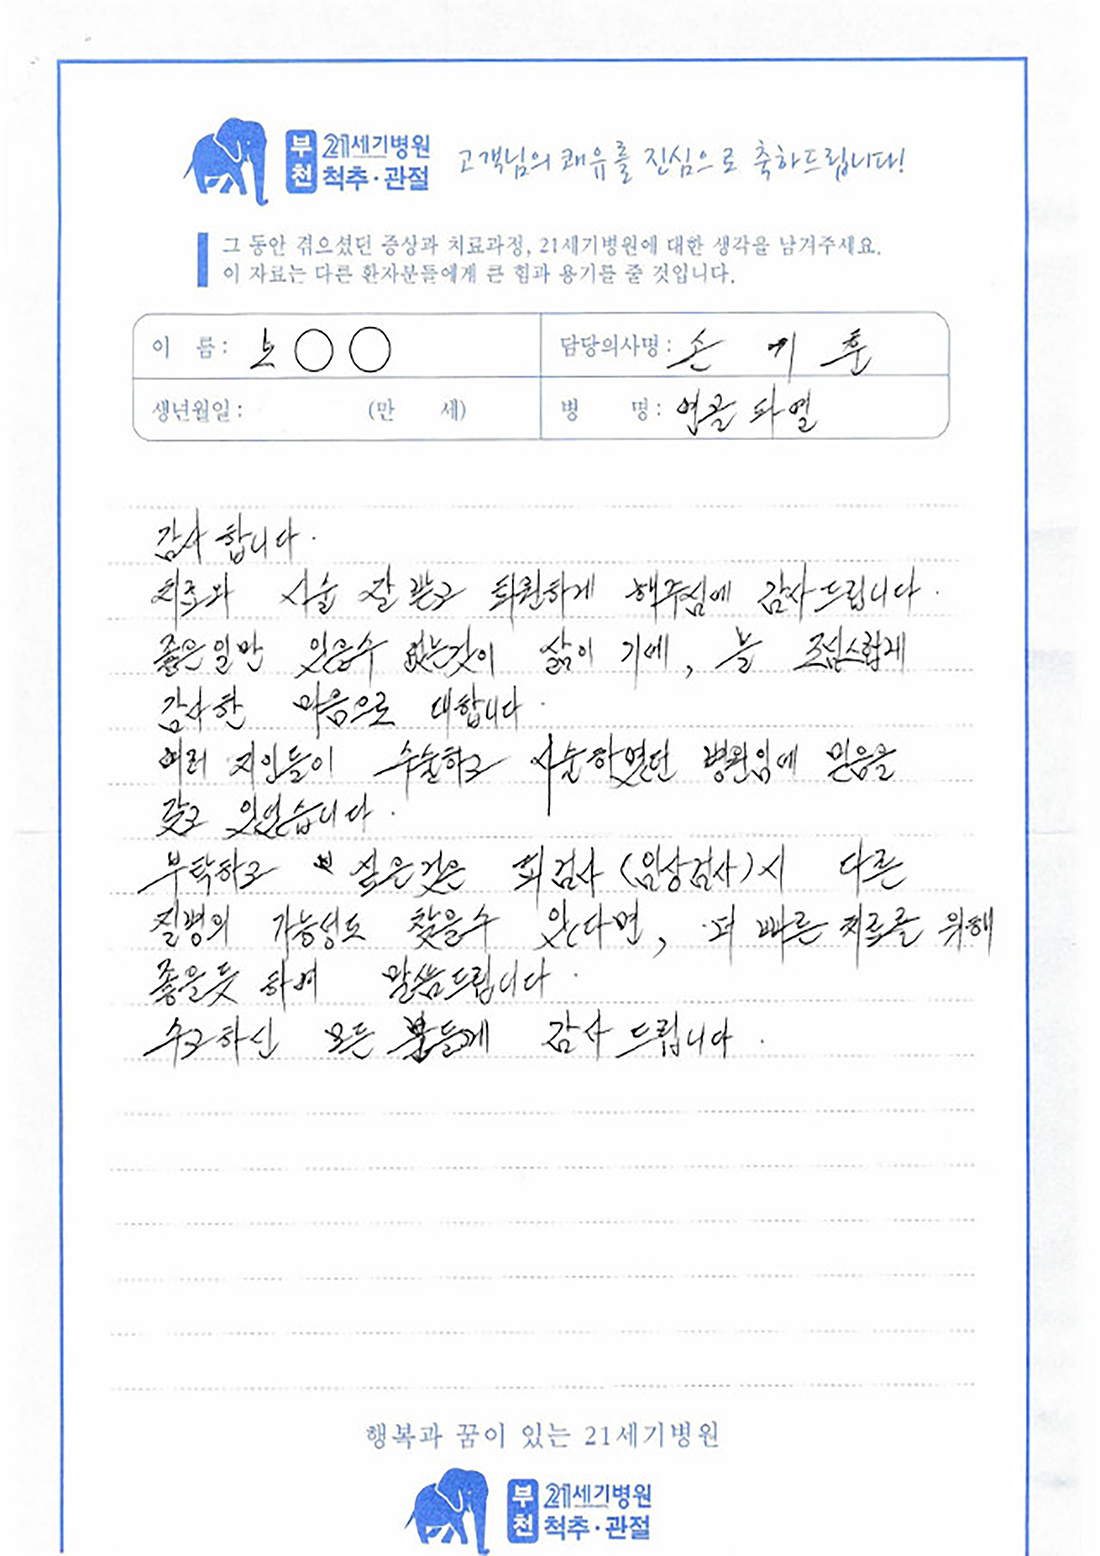 부천 21세기병원 척추·관절 고객님의 쾌유를 진심으로 축하드립니다!
그 동안 겪으셨던 증상과 치료과정, 21세기병원에 대한 생각을 남겨주세요.
이 자료는 다른 환자분들에게 큰 힘과 용기를 줄 것입니다.
이 름 : 노○○ 담당의사명 : 손 에 훈
생년월일 : (만 세) 병 명 : 연골 파열
감사 합니다.
치료와 시술 잘 받고 퇴원하게 해주심에 감사드립니다.
좋은일만 있을수 없는것이 삶이 기에, 늘 조심스럽게
감사한 마음으로 대합니다.
여러 지인들이 수술하고 시술하였던 병원임에 믿음을
갖고 있었습니다.
부탁하고 싶은것은 피검사 (임상검사)시 다른
질병의 가능성도 찾을수 있다면, 더 빠른 치료를 위해
좋을듯 하여 말씀드립니다.
수고하신 모든 분들께 감사 드립니다.
행복과 꿈이 있는 21세기병원
부천 21세기병원 척추·관절